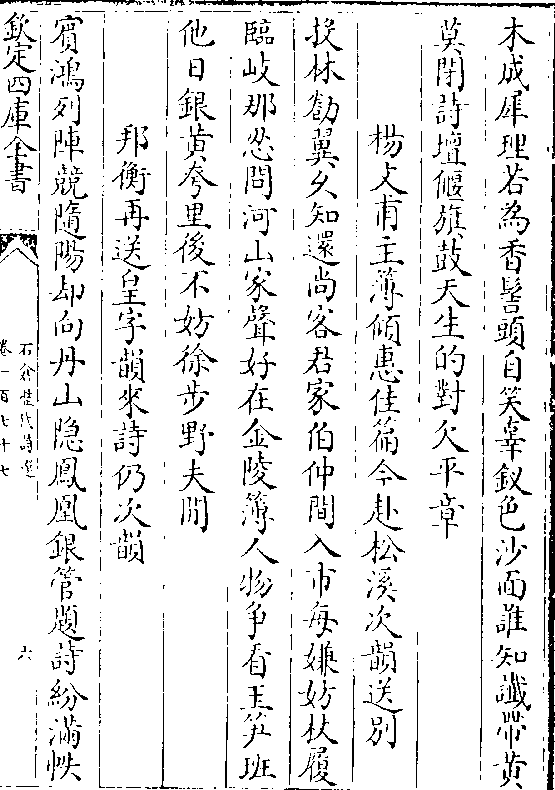 木成犀理若為香髻頭自笑辜釵色沙面誰知讖帶黄
莫閉詩壇偃旗鼓天生的對欠平章
楊文甫主薄傾惠佳篇今赴松溪次韻送別
投林勌翼久知還尚客君家伯仲間入市每嫌妨杖履
臨岐那忍問河山家聲好在金陵簿人物争看玉笋班
他日銀黄夸里後不妨徐步野夫間
邦衡再送皇字韻來詩仍次韻
賓鴻列陣競隨陽却向丹山隐鳳凰銀管題詩紛滿帙
欽定四庫全書
石倉歴代詩選
卷一百七十七
六